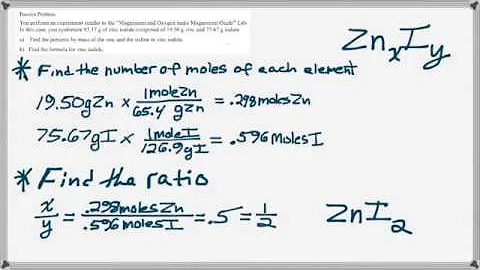 Practice Problem:
You perform an experiment similar to the "Magnesium and Oxygen make Magnesium Oxide" Lab.
In this case, you synthesize 95.17 g of zinc iodide comprised of 19.50 g zinc and 75.67 g iodine
a) Find the percents by mass of the zinc and the iodine in zinc iodide.
b) Find the formula for zinc iodide.
ZnxIy
* Find the number of moles of each element
19.50gZn × 1moleZn / 65.4 gZn = .298molesZn
75.67gI × 1moleI / 126.9gI = .596molesI
* Find the ratio
x/y = .298molesZn / .596molesI = .5 = 1/2
ZnI2